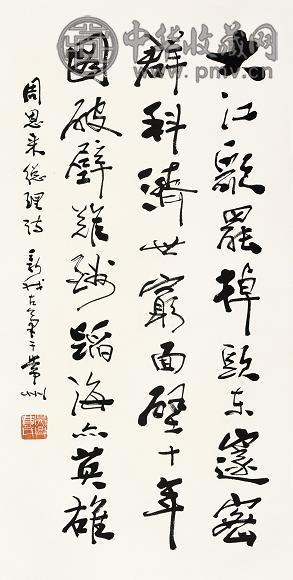 中华收藏网
www.pmv.cn
大江歌罢掉头东邃密
群科济世穷面壁十年
图破壁难酬蹈海亦英雄
周恩来总理诗
常州